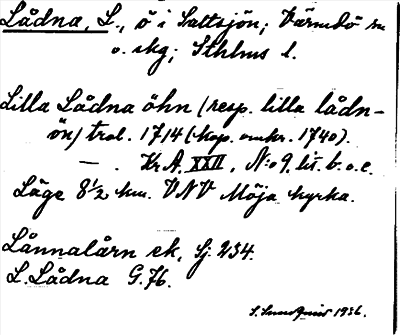 Lådna, L., ö i Saltsjön; Värmdö sn
o. skg; Sthlms l.
Lilla Lådna öhn (resp. lilla lådn-
ön) trol. 1714 (kop. omkr. 1740).
— . Kr A. XXII, N:o 9 lit. b. o. c.
Läge 8 1/2 km. VNV Möja kyrka.
Lånnalårn ek, Sj. 234.
L. Lådna G. 76.
S. Sundquist 1936.